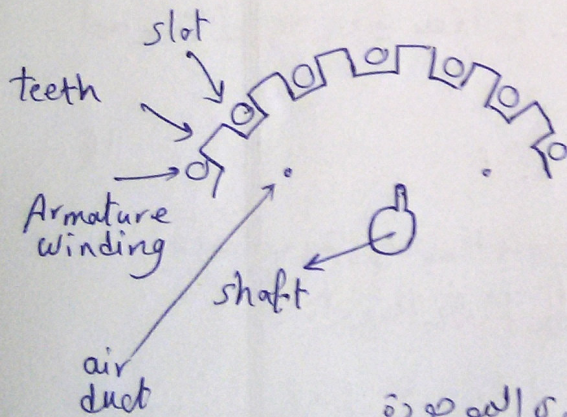 slot
teeth
Armature
winding
shaft
air
duct